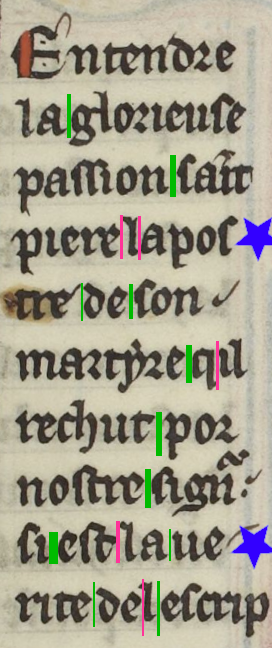 Entendre
la glorieuse
passion saīt
piere lapos
tre de son
martyre qil
rechut por
nostre sign̄.
si est la ue
rite de lescrip